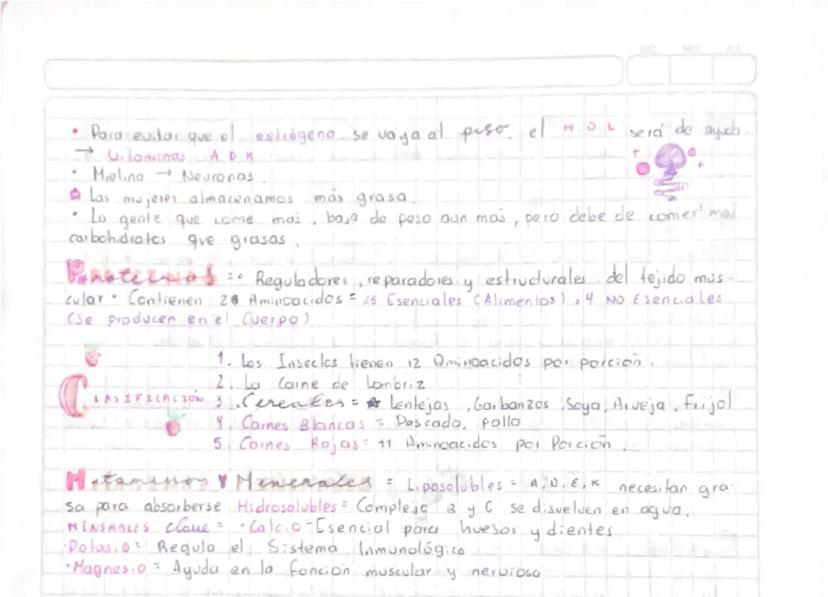 • Para evitar que el estrógeno se vaya al peso, el H D L será de ayuda
→ Vitaminas A D K
• Mielina → Neuronas
Las mujeres almacenamos más grasa.
• La gente que come mas, baja de peso aun más, pero debe de comer mas
carbohidratos que grasas.
Proteinas = • Reguladores, reparadores y estructurales del tejido mus-
cular • Contienen Aminoacidos = Esenciales (Alimentos), 4 NO Esenciales
(Se producen en el Cuerpo)
1. Los Insectos tienen 12 Aminoacidos por porción.
2. La Carne de Lombriz
CLASIFICACIÓN 3. Cereales = Lentejas, Garbanzos, Soya, Arveja, Frijol
4 Carnes Blancas = Pescado, pollo
5. Carnes Rojas = 11 Aminoacidos por Porción.
y Minerales = Liposolubles = A, D, E, K necesitan gra
sa para absorberse Hidrosolubles = Complejo B y C se disuelven en agua.
MINERALES clave = • Calcio - Esencial para huesos y dientes
• Potasio = Regula el Sistema Inmunológico
• Magnesio = Ayuda en la función muscular y nerviosa